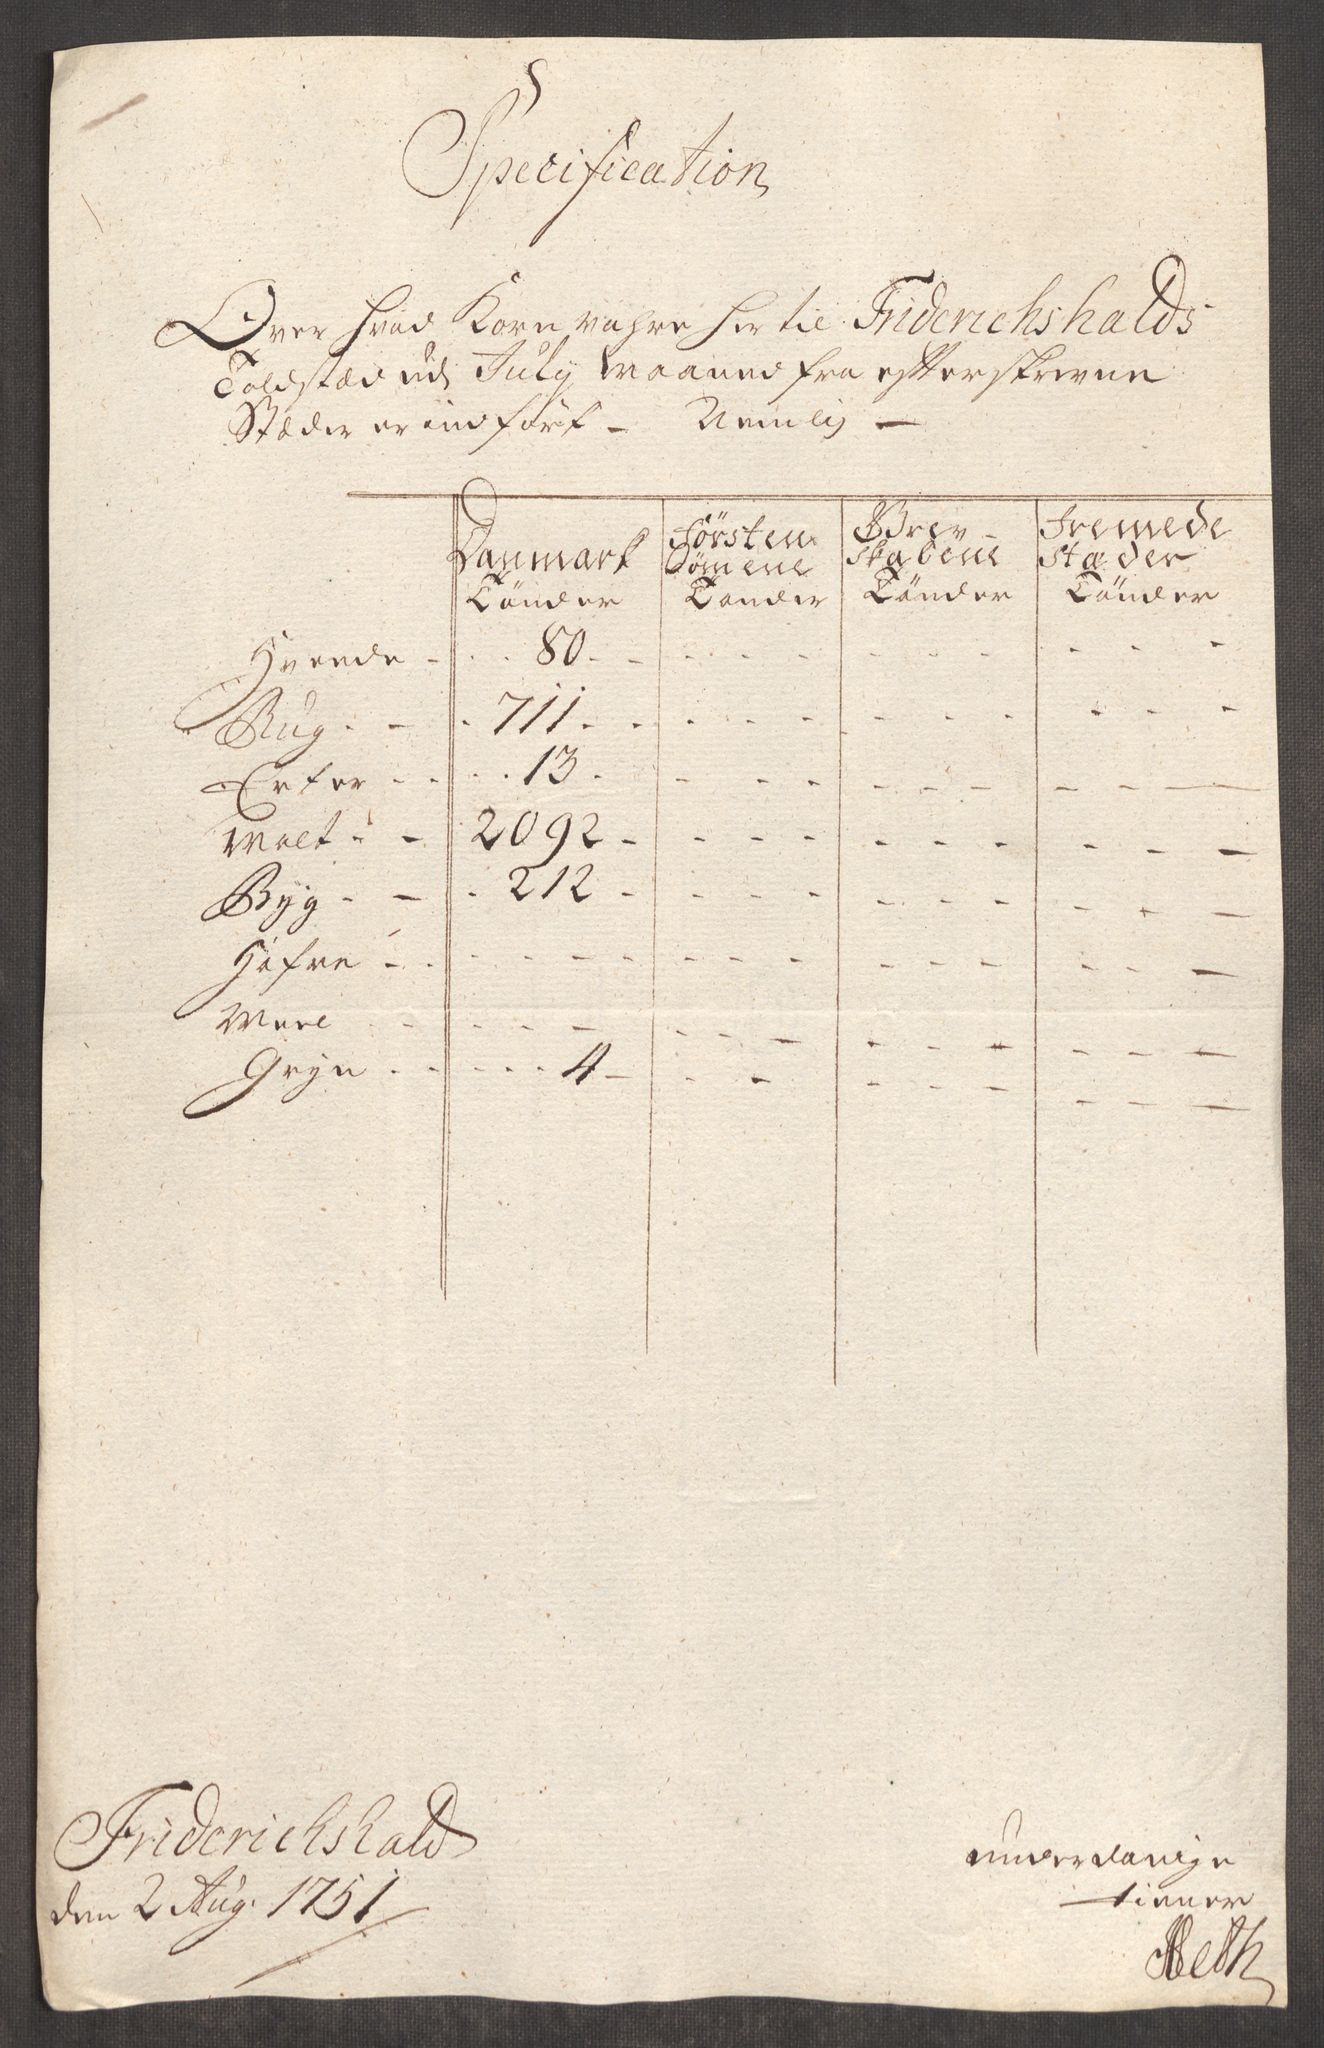 Specification
Over hvad Korn vahre her til Friderichshalds
Toldstæd udj July Maaned fra efterskrevne
Stæder er indført - Nemlig -
Danmark Førsten Grev- Fremede
dømene skabene stæder
Tønder Tønder Tønder Tønder
Hveede - . . 80 . - - - - - - - - - - -
Rug . - . 711 . . - - - - - - - - -
Erter . . . . 13 . - - - - - - - - -
Malt - - 2092 - - - - - - - - - -
Byg - - . 212 - - - - - - - - - -
Hafre - . . - - - - - - - - - - - - -
Meel - - - - - - - - - - - - - -
Gryn . . . . . 4 - - - - - - - - -
Friderichshald
den 2 Aug. 1751
underdanige
tiener